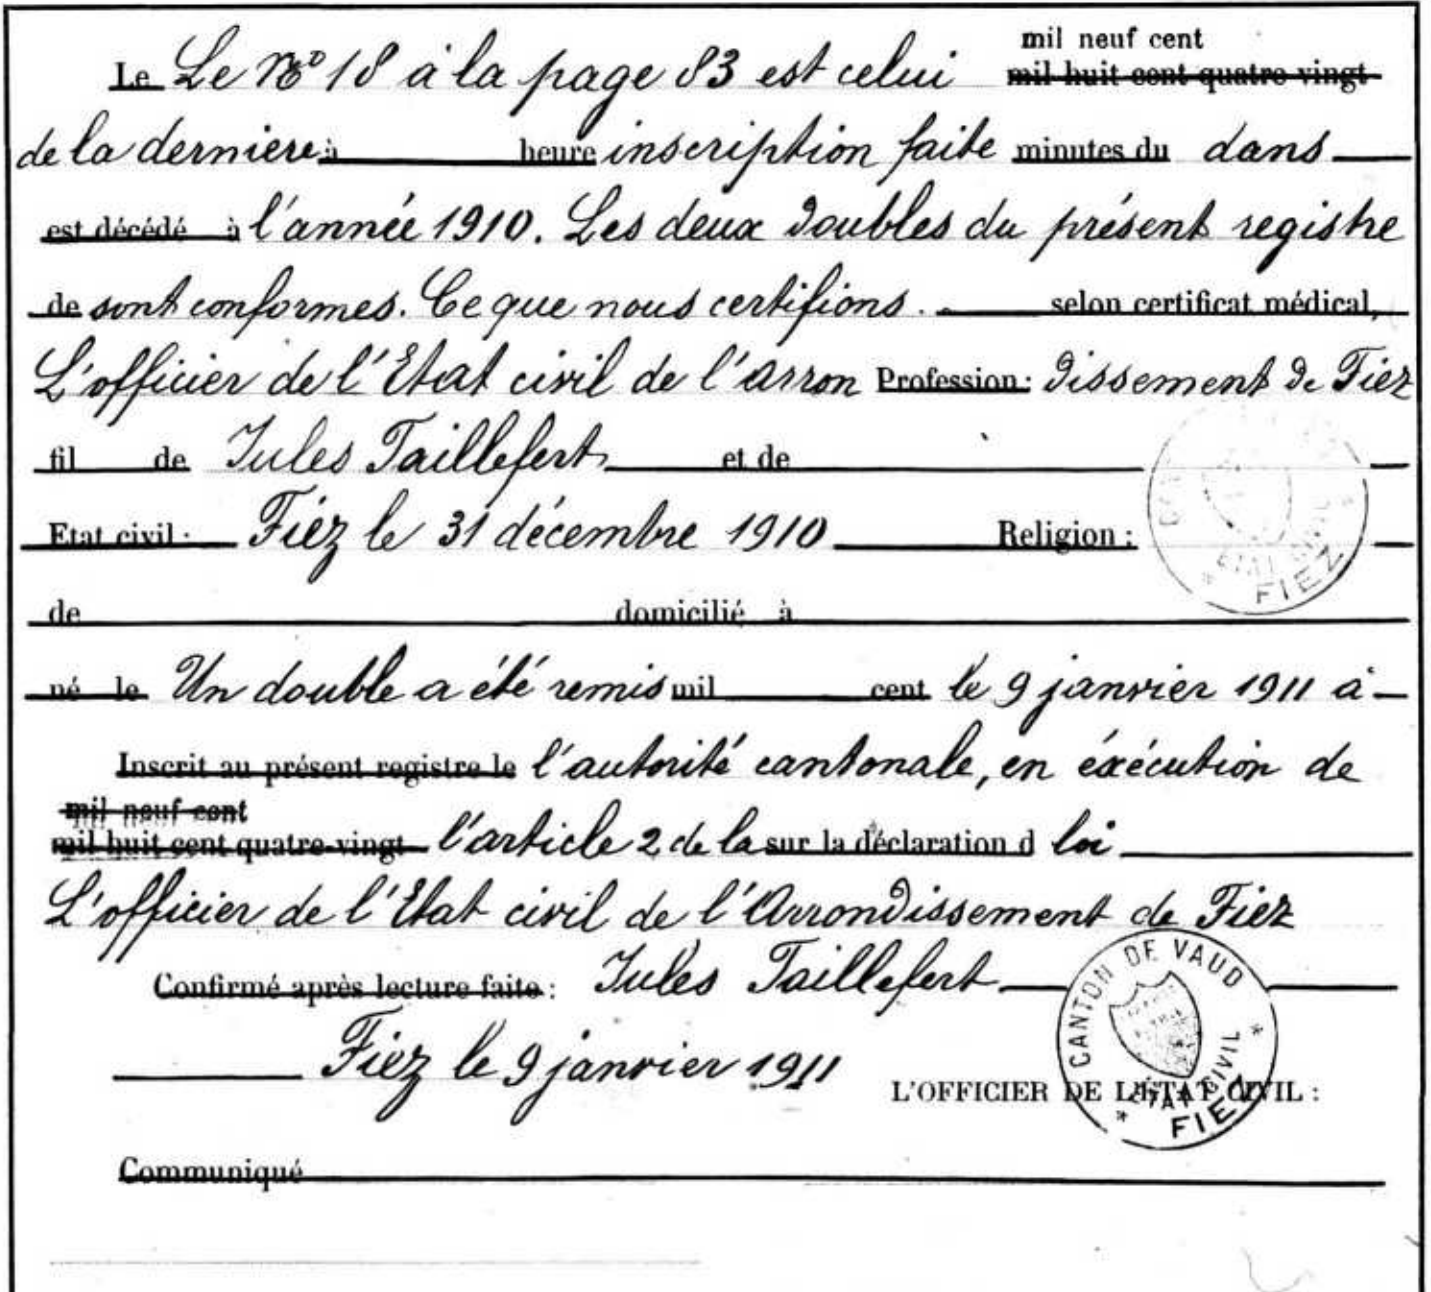 mil neuf cent
Le Le No 18 à la page 83 est celui mil huit cent quatre-vingt
de la dernière à heure inscription faite minutes du dans
est décédé à l'année 1910. Les deux doubles du présent registre
de sont conformes. Ce que nous certifions. selon certificat médical,
L'officier de l'Etat civil de l'arron Profession: dissement de Fiez
fil de Jules Taillefert et de
Etat civil: Fiez le 31 décembre 1910 Religion:
ETAT CIVIL
FIEZ
de domicilié à
né le Un double a été remis mil cent le 9 janvier 1911 à
Inscrit au présent registre le l'autorité cantonale, en éxécution de
mil neuf cent
mil huit cent quatre-vingt l'article 2 de la sur la déclaration d loi
L'officier de l'Etat civil de l'Arrondissement de Fiez
Confirmé après lecture faite: Jules Taillefert
CANTON DE VAUD
Fiez le 9 janvier 1911
L'OFFICIER DE L'ETAT CIVIL :
* ETAT CIVIL *
FIEZ
Communiqué